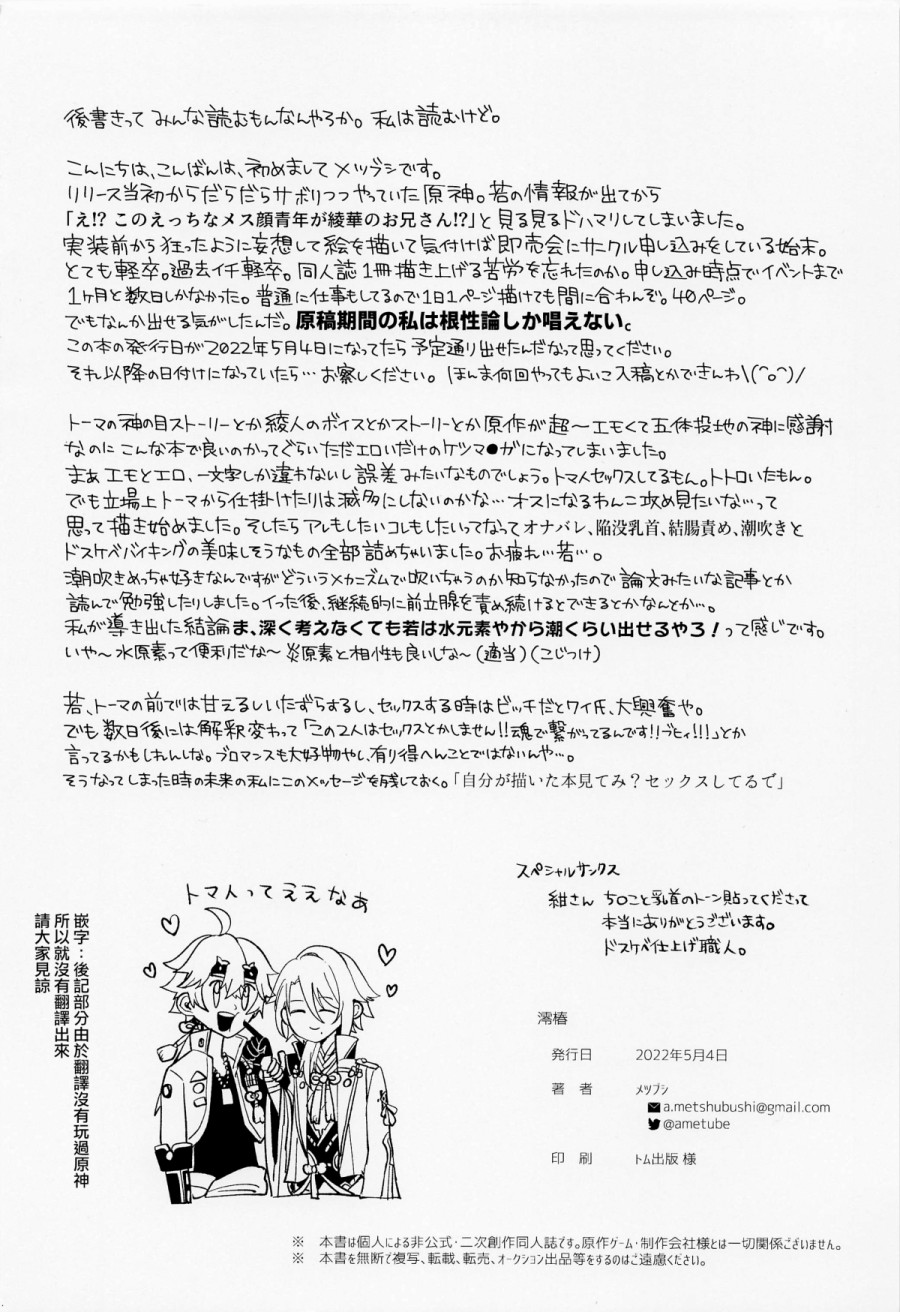 後書きって みんな読むもんなんやろか。私は読むけど。
こんにちは、こんばんは、初めましてメツブシです。
リリース当初からだらだらサボりつつやっていた原神。若の情報が出てから
「え!? このえっちなメス顔青年が綾華のお兄さん!?」と見る見るドハマりしてしまいました。
実装前から狂ったように妄想して絵を描いて気付けば即売会にサークル申し込みをしている始末。
とても軽卒。過去イチ軽卒。同人誌1冊描き上げる苦労を忘れたのか。申し込み時点でイベントまで
1ヶ月と数日しかなかった。普通に仕事もしてるので1日1ページ描けても間に合わんぞ。40ページ。
でもなんか出せる気がしたんだ。原稿期間の私は根性論しか唱えない。
この本の発行日が2022年5月4日になってたら予定通り出せたんだなって思ってください。
それ以降の日付けになっていたら…お察しください。ほんま何回やってもよいこ入稿とかできんわ\(^o^)/
トーマの神の目ストーリーとか綾人のボイスとかストーリーとか原作が超〜エモくて五体投地の神に感謝
なのにこんな本で良いのかってぐらいただエロいだけのケツマ●ガになってしまいました。
まぁエモとエロ、一文字しか違わないし誤差みたいなものでしょう。トマ人セックスしてるもん。トトロいたもん。
でも立場上トーマから仕掛けたりは滅多にしないのかな…オスになるわんこ攻め見たいな…って
思って描き始めました。そしたらアレもしたいコレもしたいってなってオナバレ、陥没乳首、結腸責め、潮吹きと
ドスケベバイキングの美味しそうなもの全部詰めちゃいました。お疲れ…若…。
潮吹きめっちゃ好きなんですがどういうメカニズムで吹いちゃうのか知らなかったので論文みたいな記事とか
読んで勉強したりしました。イった後、継続的に前立腺を責め続けるとできるとかなんとか…。
私が導き出した結論ま、深く考えなくても若は水元素やから潮くらい出せるやろ！って感じです。
いや〜水原素って便利だな〜炎原素と相性も良いしな〜(適当)(こじつけ)
若、トーマの前では甘えるしいたずらするし、セックスする時はビッチだとワイ氏、大興奮や。
でも数日後には解釈変わって「この2人はセックスとかしません!!魂で繋がってるんです!!ブヒィ!!!」とか
言ってるかもしれんしな。ブロマンスも大好物やし、有り得へんことではないんや…。
そうなってしまった時の未来の私にこのメッセージを残しておく。「自分が描いた本見てみ？セックスしてるで」
スペシャルサンクス
紺さん ちOこと乳首のトーン貼ってくださって
本当にありがとうございます。
ドスケベ仕上げ職人。
トマ人ってええなぁ
嵌字：後記部分由於翻譯沒有玩過原神
所以就沒有翻譯出來
請大家見諒
澪椿
発行日 2022年5月4日
著 者 メツブシ
a.metshubushi@gmail.com
@ametube
印 刷 トム出版 様
※ 本書は個人による非公式・二次創作同人誌です。原作ゲーム・制作会社様とは一切関係ございません。
※ 本書を無断で複写、転載、転売、オークション出品等をするのはご遠慮ください。